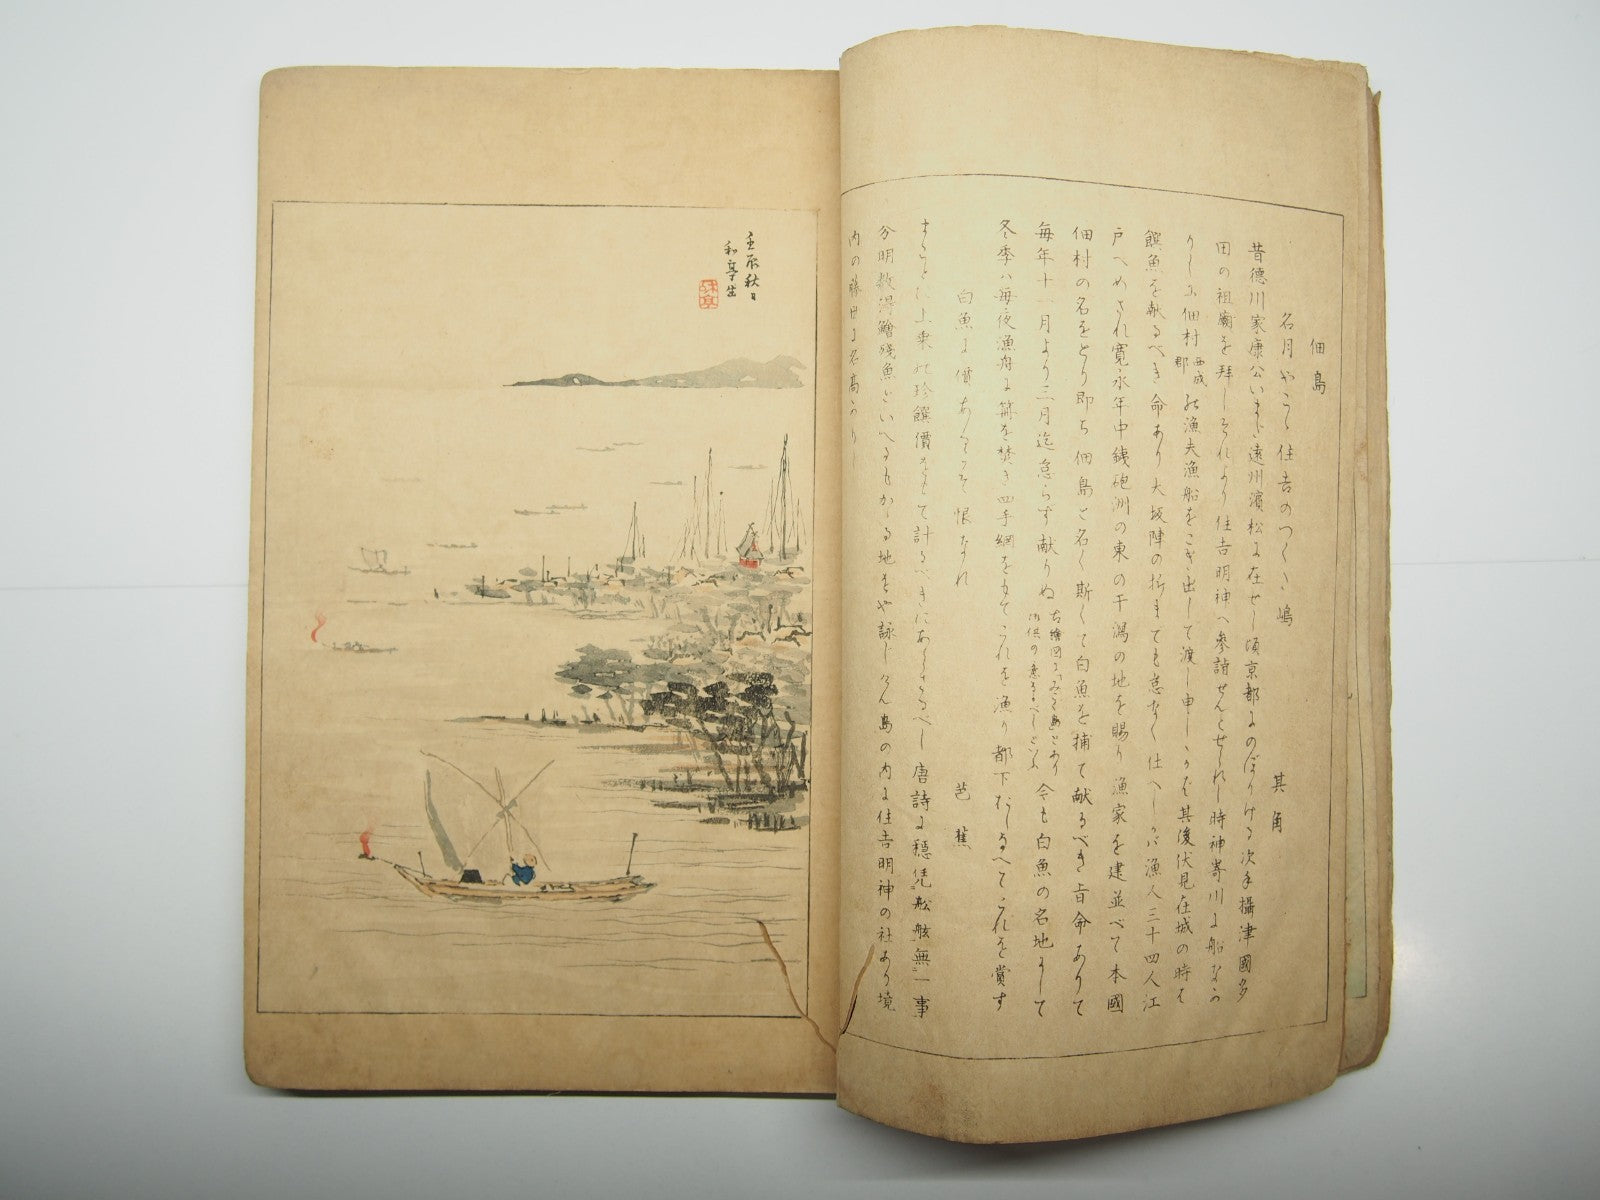 佃島
名月やこゝ住吉のつくだ嶋 其角
昔德川家康公いまだ遠州濱松に在せし頃京都にのぼりける次手攝津國多
田の祖廟を拜しそれより住吉明神へ參詣せんとせられし時神寄川に船なか
りしに佃村 西成郡 の漁夫漁船をこぎ出して渡し申しゝかば其後伏見在城の時も
饌魚を献るべき命あり大坂陣の折までも怠なく仕へしかバ漁人三十四人江
戸へめされ寛永年中銕砲洲の東の干潟の地を賜り漁家を建並べて本國
佃村の名をとり即ち佃島と名く斯くて白魚を捕て献るべき旨命ありて
毎年十一月より三月迄怠らず献りぬ 今も白魚の名地にして
冬季ハ毎夜漁舟に篝を焚き四手網をもてこれを漁り都下おしなべてこれを賞す
白魚に價あるこそ恨なれ 芭蕉
まことに上乘の珍饌價をもて計るべきにあらざるべし唐詩に穩凭舩舷無一事
分明數得鱠殘魚といへるもかゝる地をや詠じけん島の内に住吉明神の社あり境
内の藤
壬辰秋日
和亭生